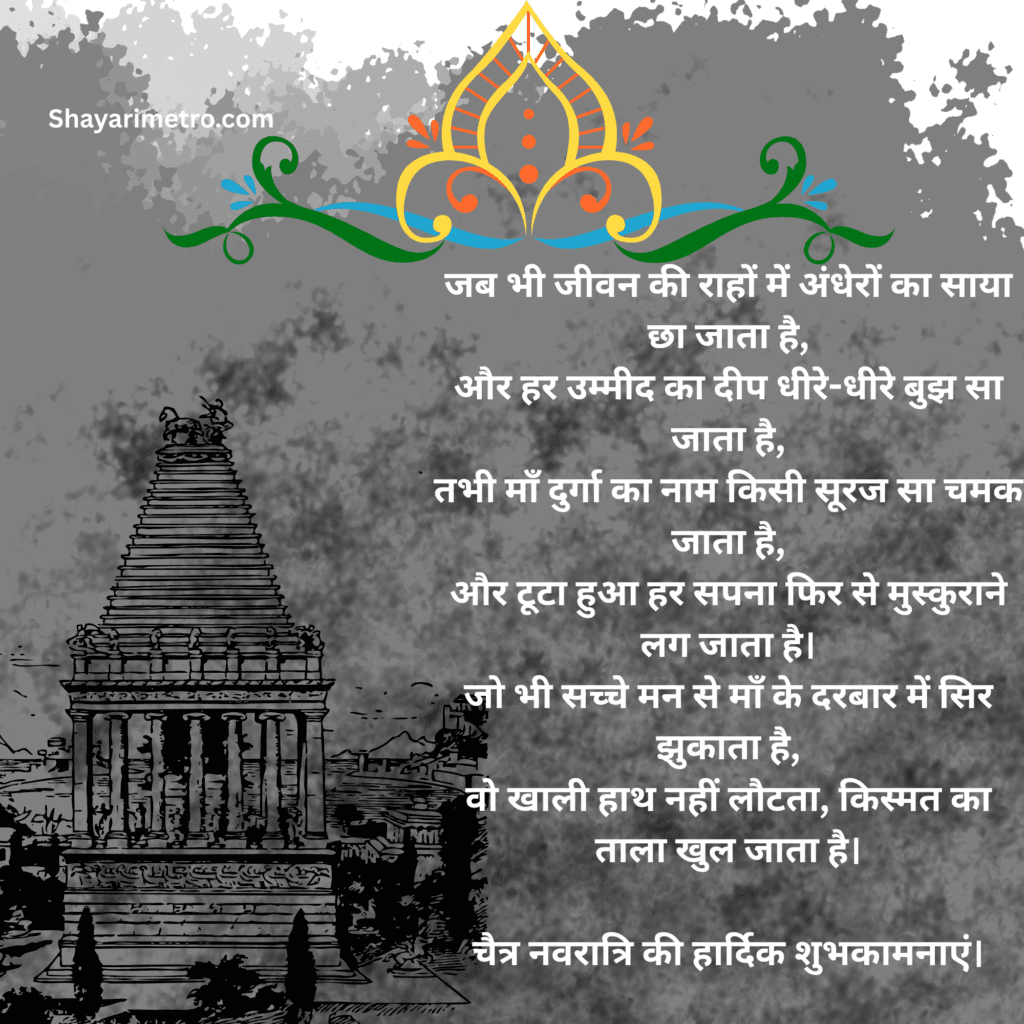 Shayarimetro.com
जब भी जीवन की राहों में अंधेरों का साया
छा जाता है,
और हर उम्मीद का दीप धीरे-धीरे बुझ सा
जाता है,
तभी माँ दुर्गा का नाम किसी सूरज सा चमक
जाता है,
और टूटा हुआ हर सपना फिर से मुस्कुराने
लग जाता है।
जो भी सच्चे मन से माँ के दरबार में सिर
झुकाता है,
वो खाली हाथ नहीं लौटता, किस्मत का
ताला खुल जाता है।
चैत्र नवरात्रि की हार्दिक शुभकामनाएं।